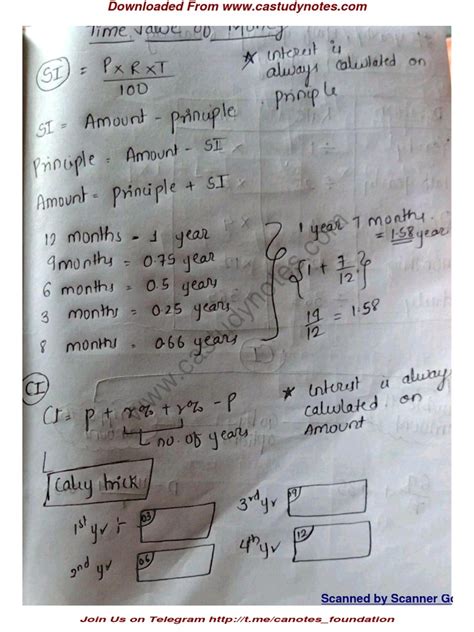 Downloaded From www.castudynotes.com
Time Value of Money
SI = P x R x T
100
* interest is
always calculated on
priniple
SI = Amount - principle
Principle = Amount - SI
Amount = principle + SI
12 months - 1 year
9 months = 0.75 year
6 months = 0.5 years
3 months = 0.25 years
8 months = 0.66 years
1 year 7 months.
= 1.58 year
{1 + 7/12}
19/12 = 1.58
1
www.castudynotes.com
CI
CI = p + r% + r% - p
no. of years
* interest is always
calculated on
Amount
Calcy trick
1st yr :- 03
2nd yr 06
3rd yr 09
4th yr 12
Scanned by Scanner Go
Join Us on Telegram http://t.me/canotes_foundation